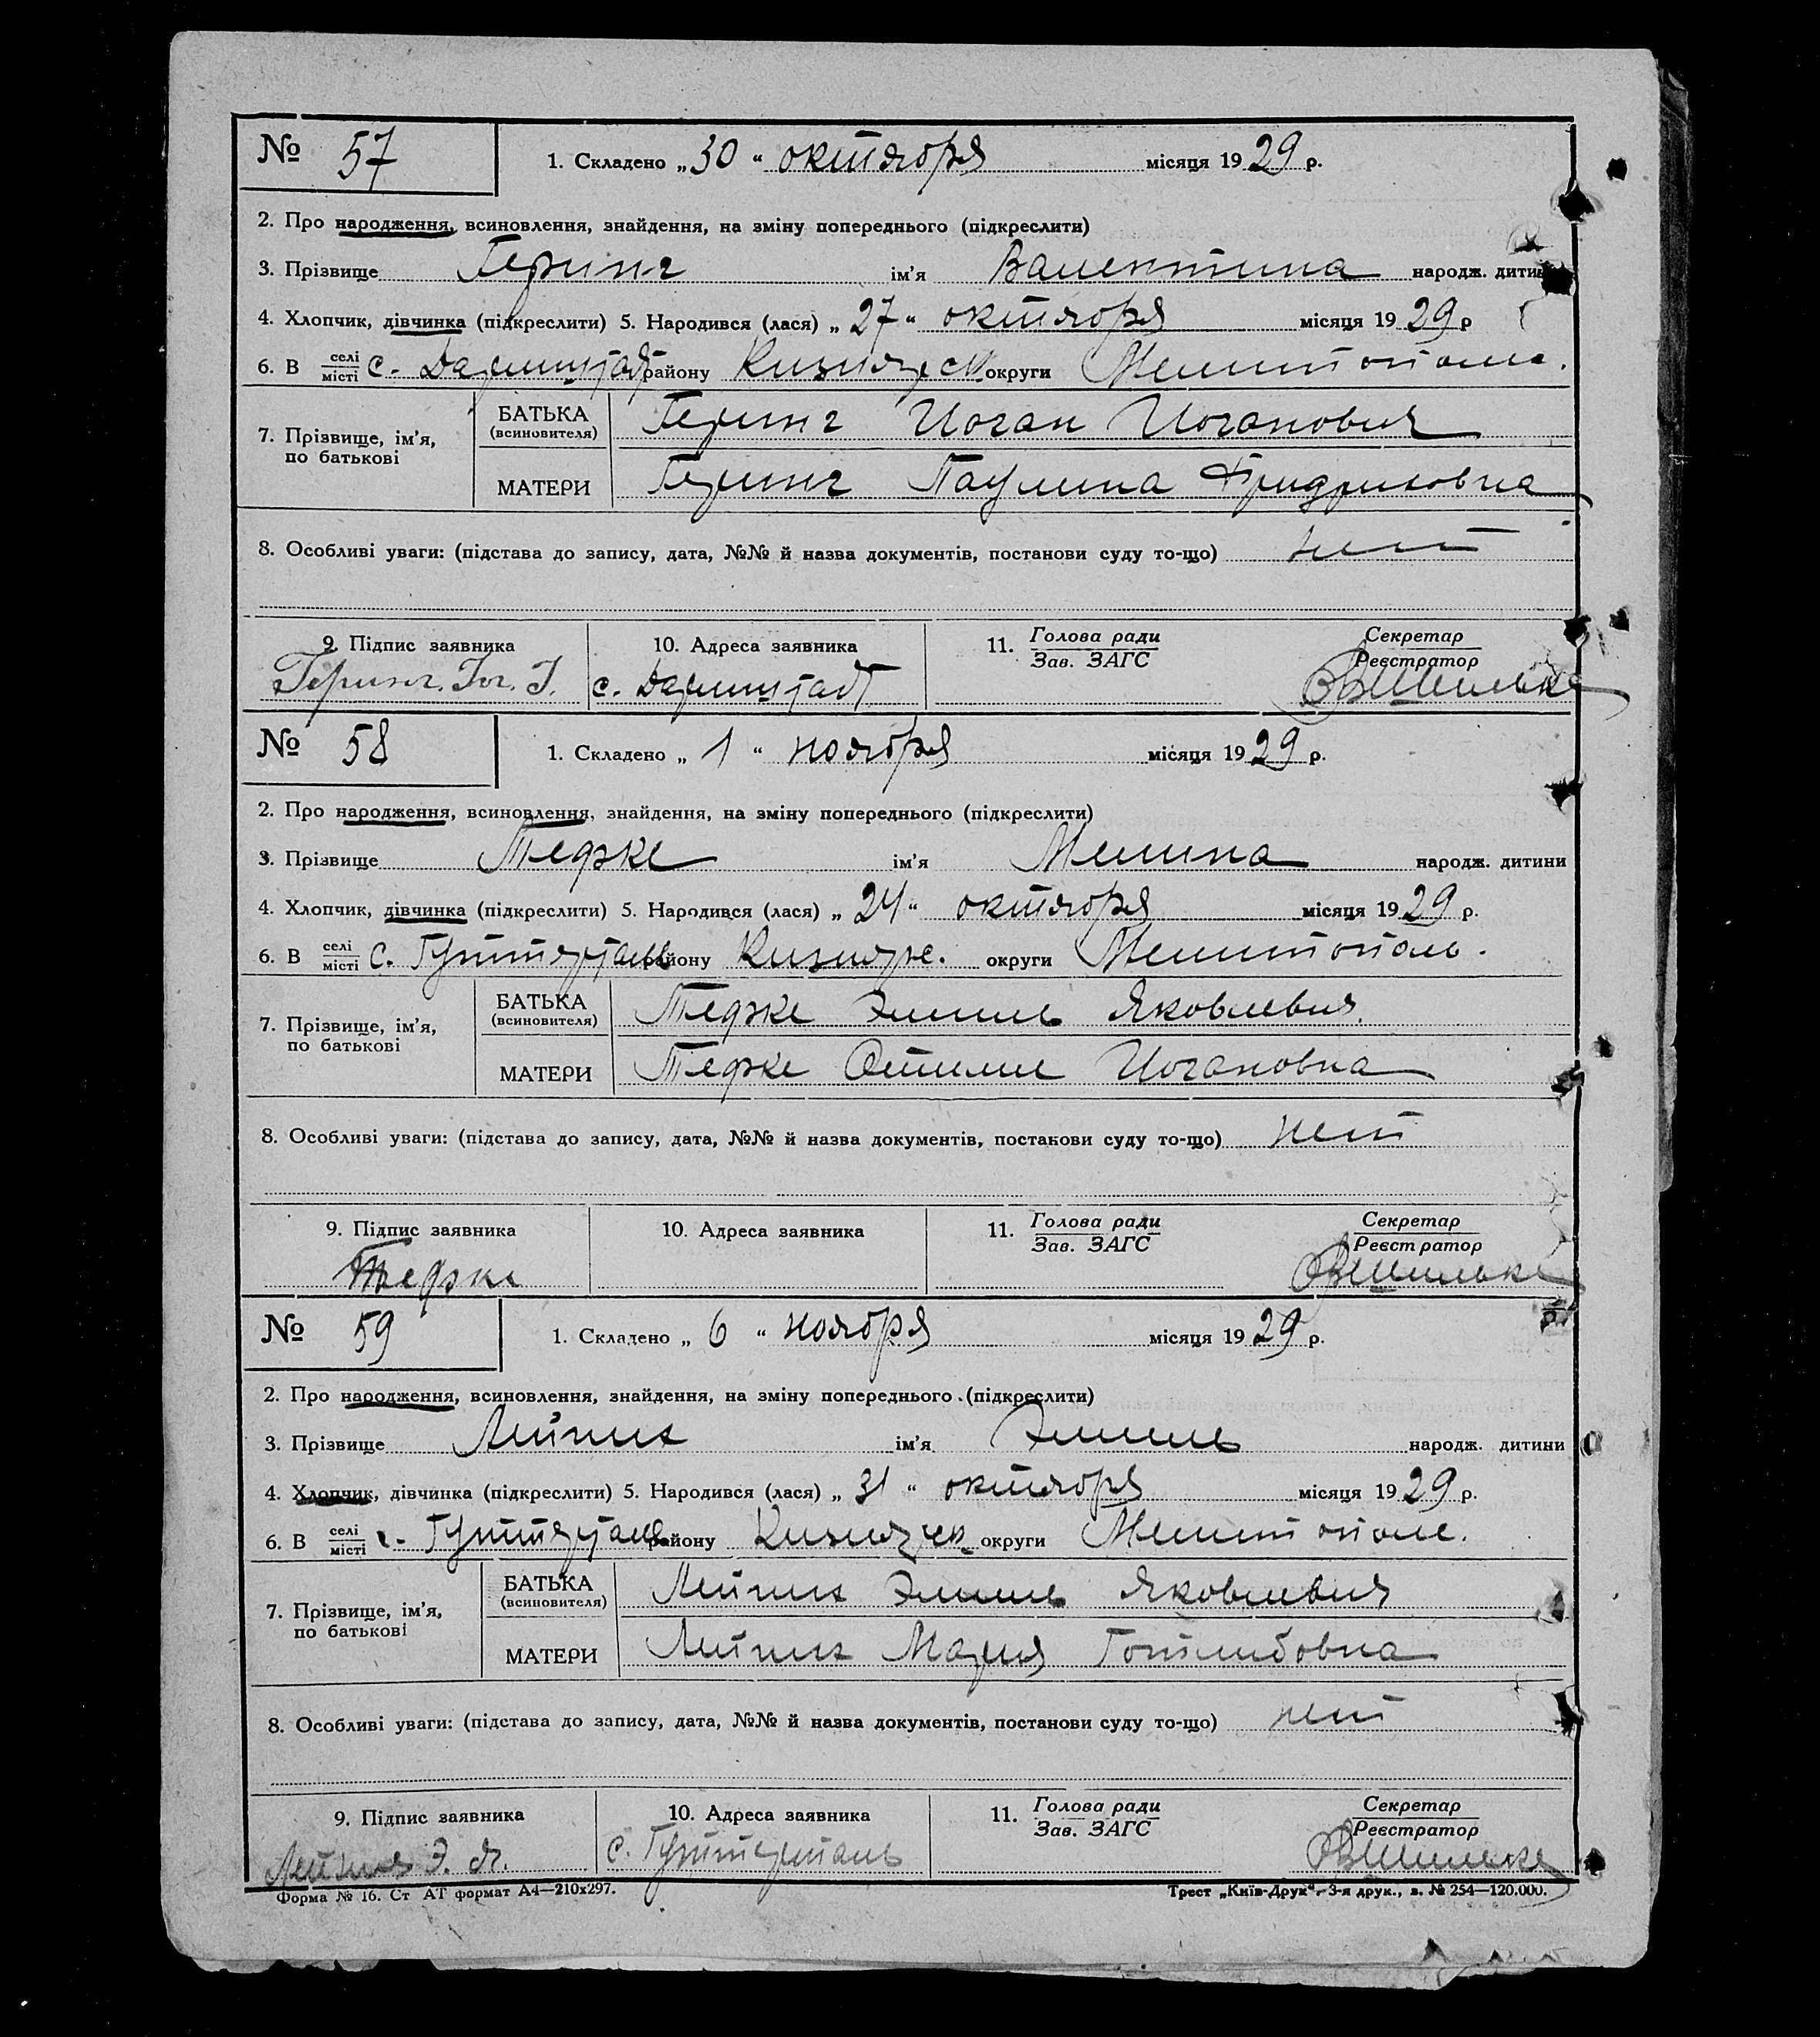 № 57 1. Складено „30“ октября місяця 1929 р.
2. Про народження, всиновлення, знайдення, на зміну попереднього (підкреслити)
3. Прізвище Геринг ім’я Валентина народж. дитини
4. Хлопчик, дівчинка (підкреслити) 5. Народився (лася) „27“ октября місяця 1929 р
6. В селі місті с. Дармштадт району Кизиярск округи Мелитополе.
7. Прізвище, ім’я, по батькові
БАТЬКА (всиновителя) Геринг Иоган Иоганович
МАТЕРИ Геринг Паулина Фридриховна
8. Особливі уваги: (підстава до запису, дата, №№ й назва документів, постанови суду то-що) нет
9. Підпис заявника 10. Адреса заявника 11. Голова ради Зав. ЗАГС Секретар Реєстратор
Геринг. Иог. И. с. Дармштадт
№ 58 1. Складено „1“ ноября місяця 1929 р.
2. Про народження, всиновлення, знайдення, на зміну попереднього (підкреслити)
3. Прізвище Тефке ім’я Мелина народж. дитини
4. Хлопчик, дівчинка (підкреслити) 5. Народився (лася) „24“ октября місяця 1929 р.
6. В селі місті с. Гуттерталь району Кизиярс. округи Мелитополь.
7. Прізвище, ім’я, по батькові
БАТЬКА (всиновителя) Тефке Эмиль Яковлевич
МАТЕРИ Тефке Отилие Иогановна
8. Особливі уваги: (підстава до запису, дата, №№ й назва документів, постанови суду то-що) нет
9. Підпис заявника 10. Адреса заявника 11. Голова ради Зав. ЗАГС Секретар Реєстратор
Тефке
№ 59 1. Складено „6“ ноября місяця 1929 р.
2. Про народження, всиновлення, знайдення, на зміну попереднього (підкреслити)
3. Прізвище ім’я Эмиль народж. дитини
4. Хлопчик, дівчинка (підкреслити) 5. Народився (лася) „31“ октября місяця 1929 р.
6. В селі місті с. Гуттерталь району Кизиярск округи Мелитополе.
7. Прізвище, ім’я, по батькові
БАТЬКА (всиновителя) Эмиль Яковлевич
МАТЕРИ Мария Готлибовна
8. Особливі уваги: (підстава до запису, дата, №№ й назва документів, постанови суду то-що) нет
9. Підпис заявника 10. Адреса заявника 11. Голова ради Зав. ЗАГС Секретар Реєстратор
Э. Я. с. Гуттерталь
Форма № 16. Ст АТ формат А4—210х297. Трест „Київ-Друк“, 3-я друк., в. № 254—120.000.